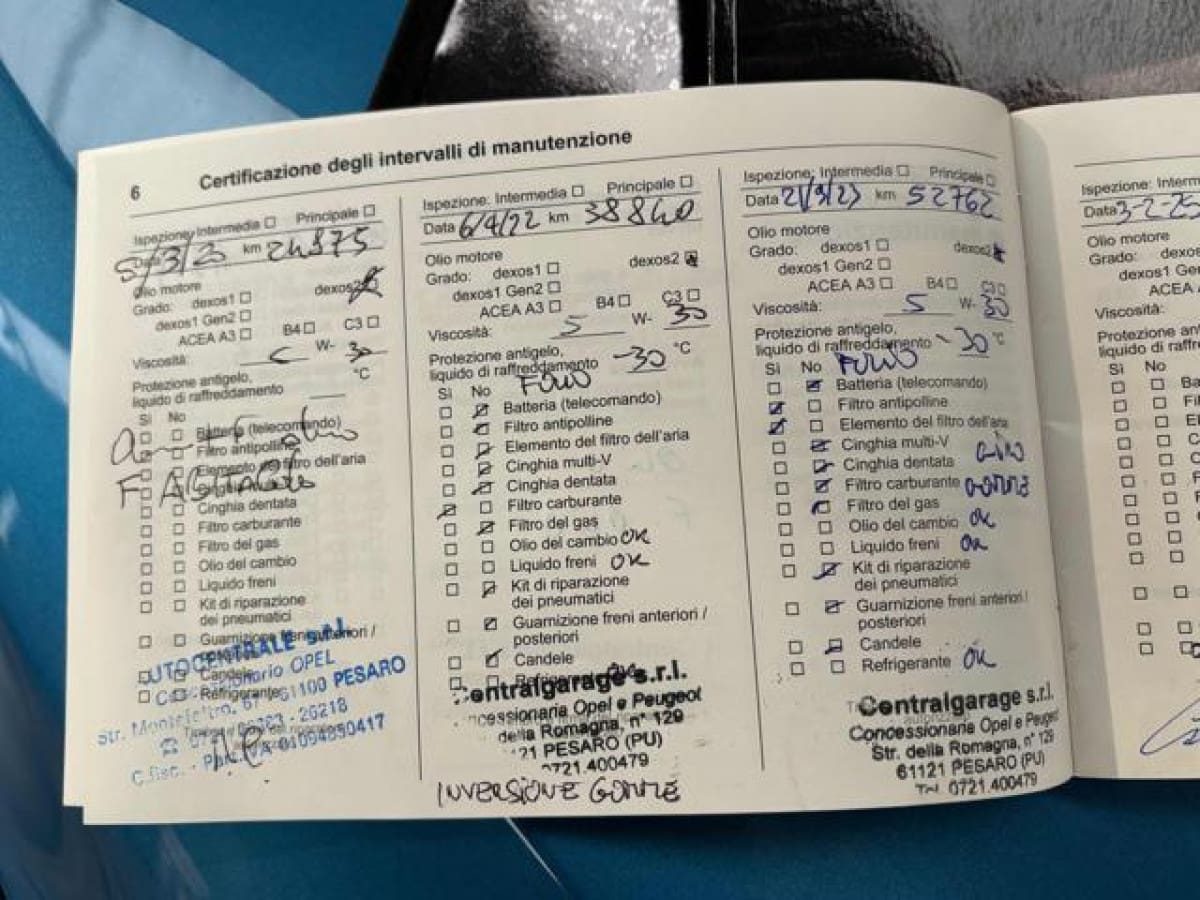 6
Certificazione degli intervalli di manutenzione
Ispezione: Intermedia ☐ Principale ☐
Data 5/3/ km 24975
Olio motore
Grado: dexos1 ☐ dexos2
dexos1 Gen2 ☐
ACEA A3 ☐ B4 ☐ C3 ☐
Viscosità: W- 30
Protezione antigelo, °C
liquido di raffreddamento
Sì No
Batteria (telecomando)
Filtro antipolline
Elemento del filtro dell'aria
Cinghia dentata
Filtro carburante
Filtro del gas
Olio del cambio
Liquido freni
Kit di riparazione
dei pneumatici
Guarnizione freni anteriori /
Candele
Refrigerante
AUTOCENTRALE s.r.l.
OPEL
Str. 67 - 61100 PESARO
- 26218
Ispezione: Intermedia ☐ Principale ☐
Data 6/4/22 km 38840
Olio motore
Grado: dexos1 ☐ dexos2 ☒
dexos1 Gen2 ☐
ACEA A3 ☐ B4 ☐ C3 ☐
Viscosità: 5 W- 30
Protezione antigelo,
liquido di raffreddamento -30 °C
Sì No
Batteria (telecomando)
Filtro antipolline
Elemento del filtro dell'aria
Cinghia multi-V
Cinghia dentata
Filtro carburante
Filtro del gas
Olio del cambio OK
Liquido freni OK
Kit di riparazione
dei pneumatici
Guarnizione freni anteriori /
posteriori
Candele
Refrigerante OK
Centralgarage s.r.l.
oncessionaria Opel e Peugeot
della Romagna, n° 129
21 PESARO (PU)
0721.400479
INVERSIONE GOMME
Ispezione: Intermedia ☐ Principale ☐
Data 21/3/23 km 52762
Olio motore
Grado: dexos1 ☐ dexos2 ☒
dexos1 Gen2 ☐
ACEA A3 ☐ B4 ☐ C3 ☐
Viscosità: 5 W- 30
Protezione antigelo,
liquido di raffreddamento -30 °C
Sì No
Batteria (telecomando)
Filtro antipolline
Elemento del filtro dell'aria
Cinghia multi-V
Cinghia dentata GIRO
Filtro carburante GOMME
Filtro del gas
Olio del cambio OK
Liquido freni OK
Kit di riparazione
dei pneumatici
Guarnizione freni anteriori /
posteriori
Candele
Refrigerante OK
Centralgarage s.r.l.
Concessionaria Opel e Peugeot
Str. della Romagna, n° 129
61121 PESARO (PU)
Tel. 0721.400479
Ispezione: Interm
Data 3-2-25
Olio motore
Grado: dexos
dexos1 Gen2
ACEA A3
Viscosità:
Protezione antigelo,
liquido di raffreddam
Sì No
Batteria